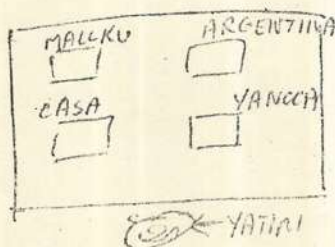 MALLKU
ARGENTINA
CASA
YANCCA
YATIRI